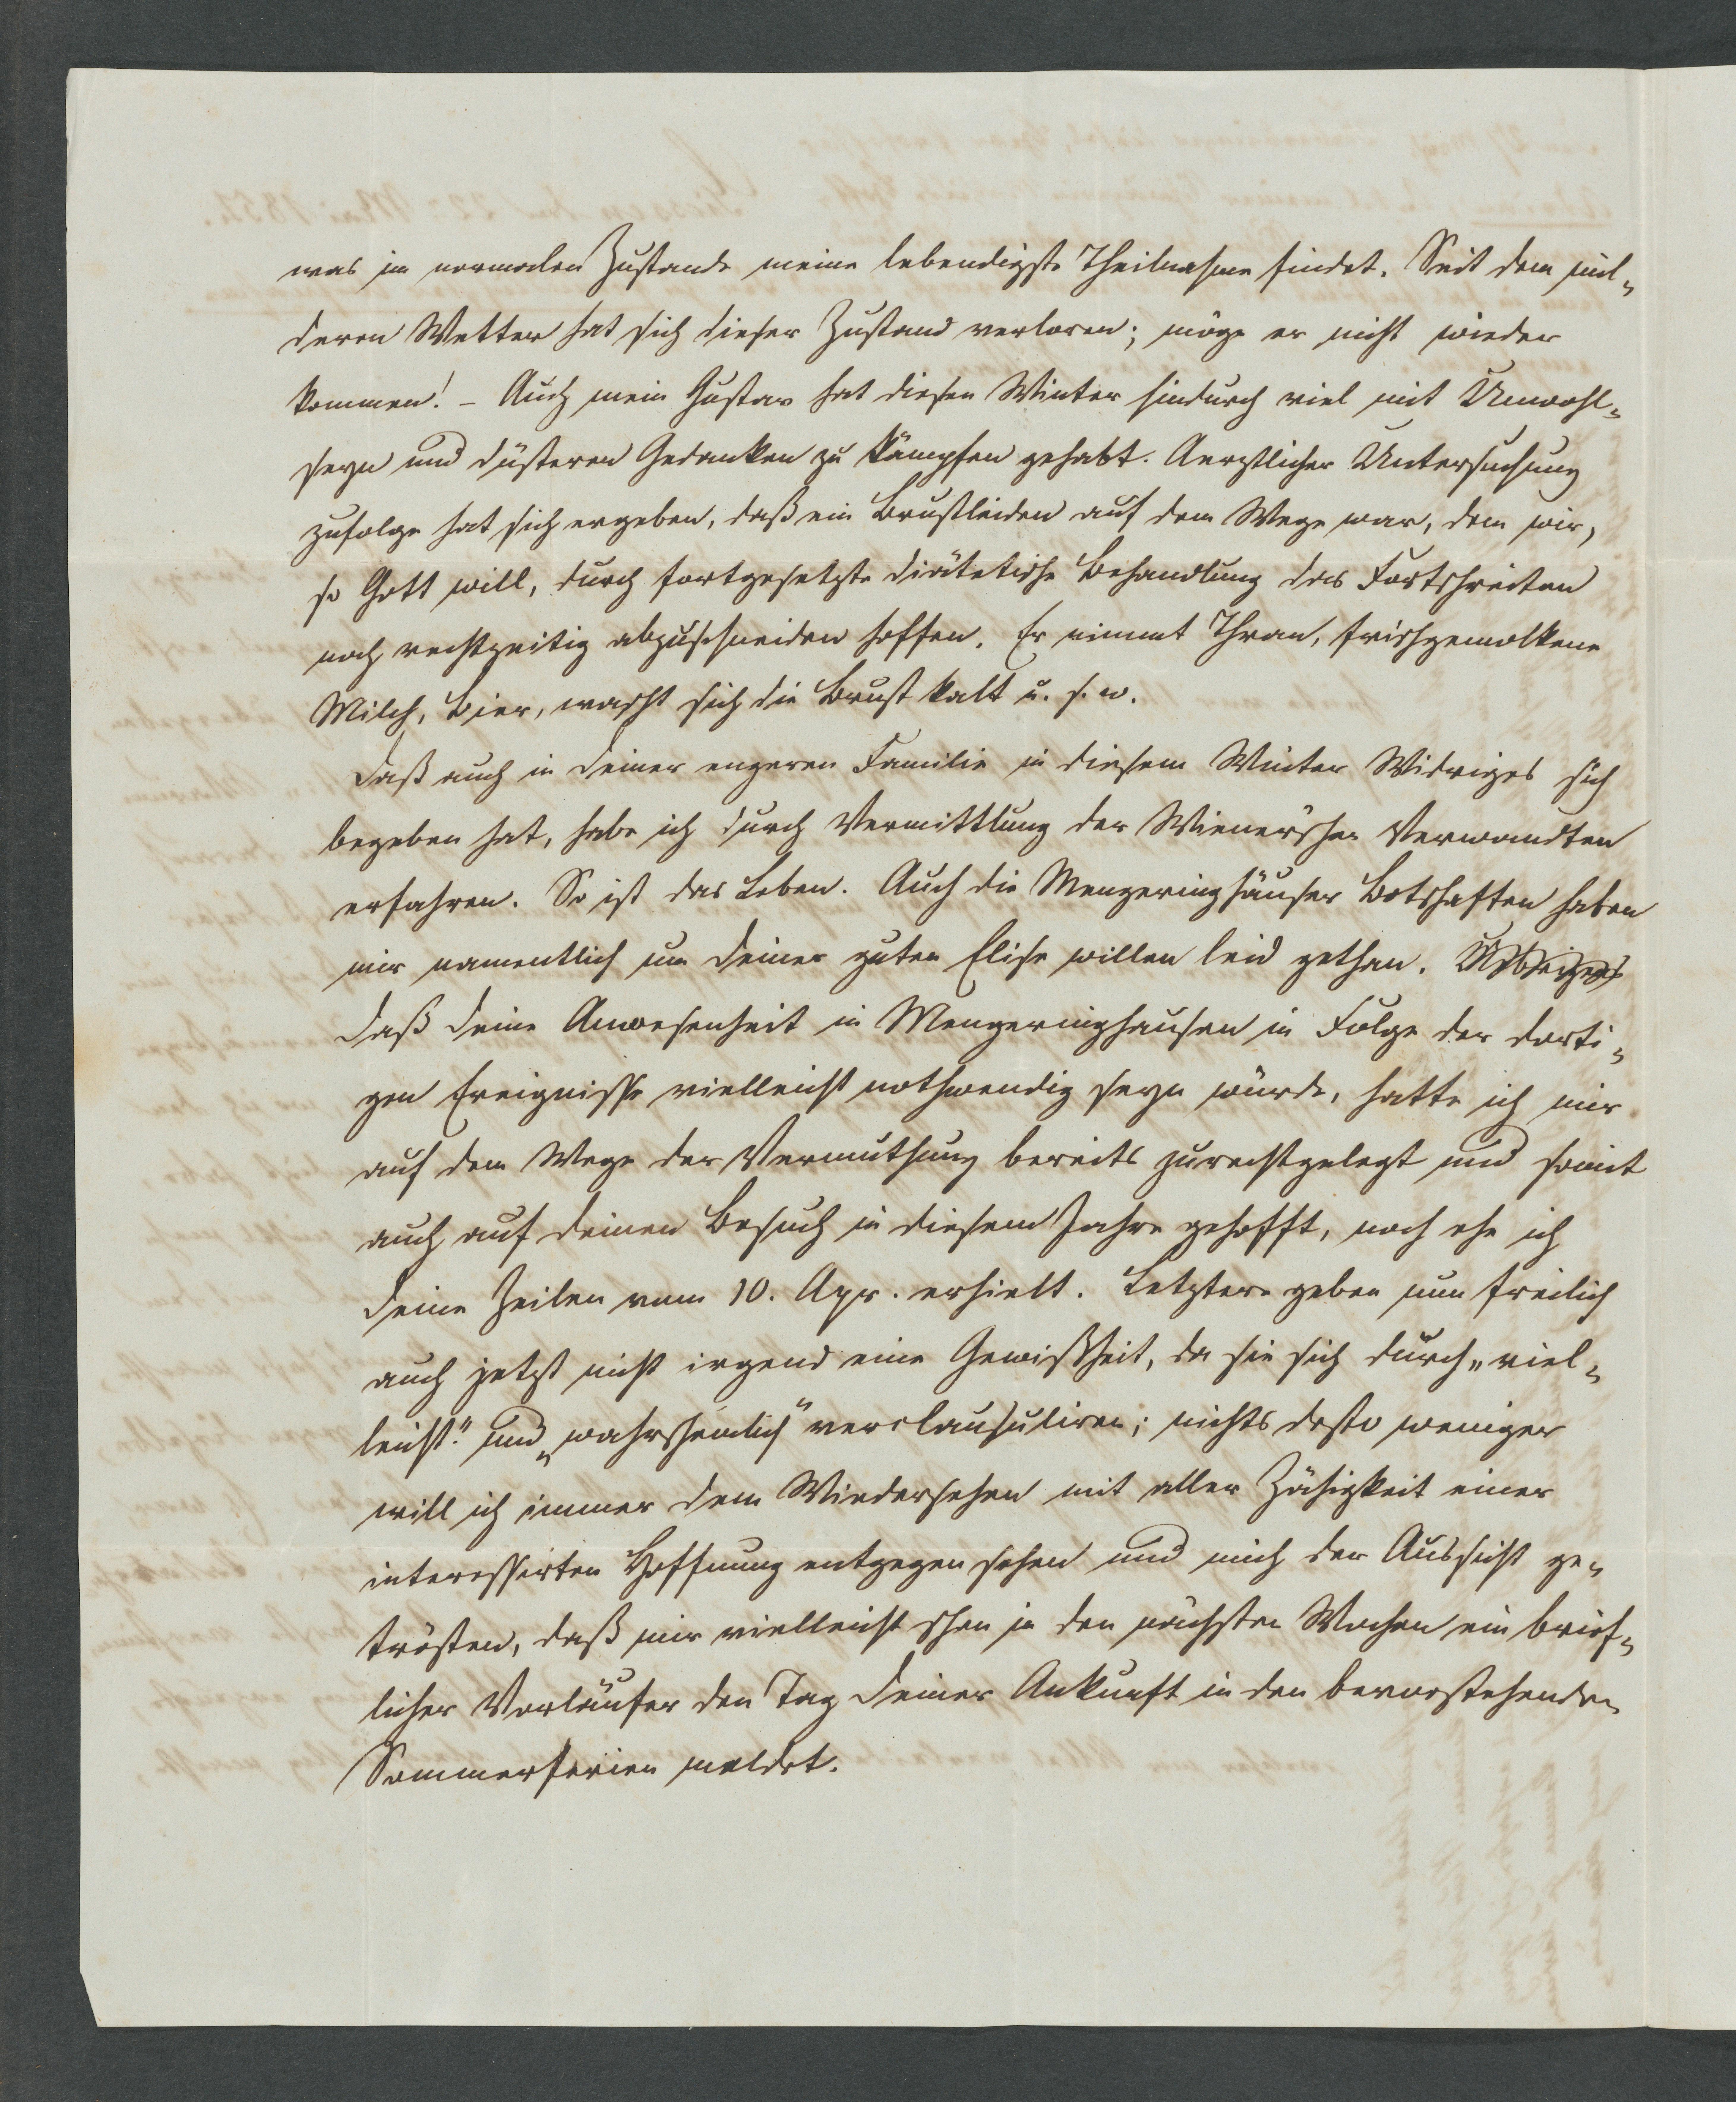 was im normalen Zustande meine lebendigste Theilnahme findet. Seit dem mil-
deren Wetter hat sich dieser Zustand verloren; möge er nicht wieder
kommen! – Auch mein Gustav hat diesen Winter hindurch viel mit Unwohl-
seyn und düsteren Gedanken zu kämpfen gehabt. Aerztlicher Untersuchung
zufolge hat sich ergeben, daß ein Brustleiden auf dem Wege war, dem wir,
so Gott will, durch fortgesetzte diätetische Behandlung das Fortschreiten
noch rechtzeitig abzuschneiden hoffen. Er nimmt Thran, frischgemolkene
Milch, Bier, wascht sich die Brust kalt u. s. w.
Daß auch in Deiner engeren Familie in diesem Winter Widriges sich
begeben hat, habe ich durch Vermittlung der Wiener'schen Verwandten
erfahren. So ist das Leben. Auch die Mengeringhäuser Botschaften haben
mir namentlich um Deiner guten Elise willen leid gethan. Uebrigens
Daß Deine Anwesenheit in Mengeringhausen in Folge der dorti-
gen Ereignisse vielleicht nothwendig seyn würde, hatte ich mir
auf dem Wege der Vermuthung bereits zurechtgelegt und somit
auch auf Deinen Besuch in diesem Jahre gehofft, noch ehe ich
Deine Zeilen vom 10. Apr. erhielt. Letztere geben nun freilich
auch jetzt nicht irgend eine Gewißheit, da sie sich durch „viel-
leicht" und „wahrscheinlich" verclausuliren; nichts desto weniger
will ich immer dem Wiedersehen mit aller Zähigkeit einer
interessirten Hoffnung entgegen sehen und mich der Aussicht ge-
trösten, daß mir vielleicht schon in den nächsten Wochen ein brief-
licher Vorläufer den Tag Deiner Ankunft in den bevorstehenden
Sommerferien meldet.